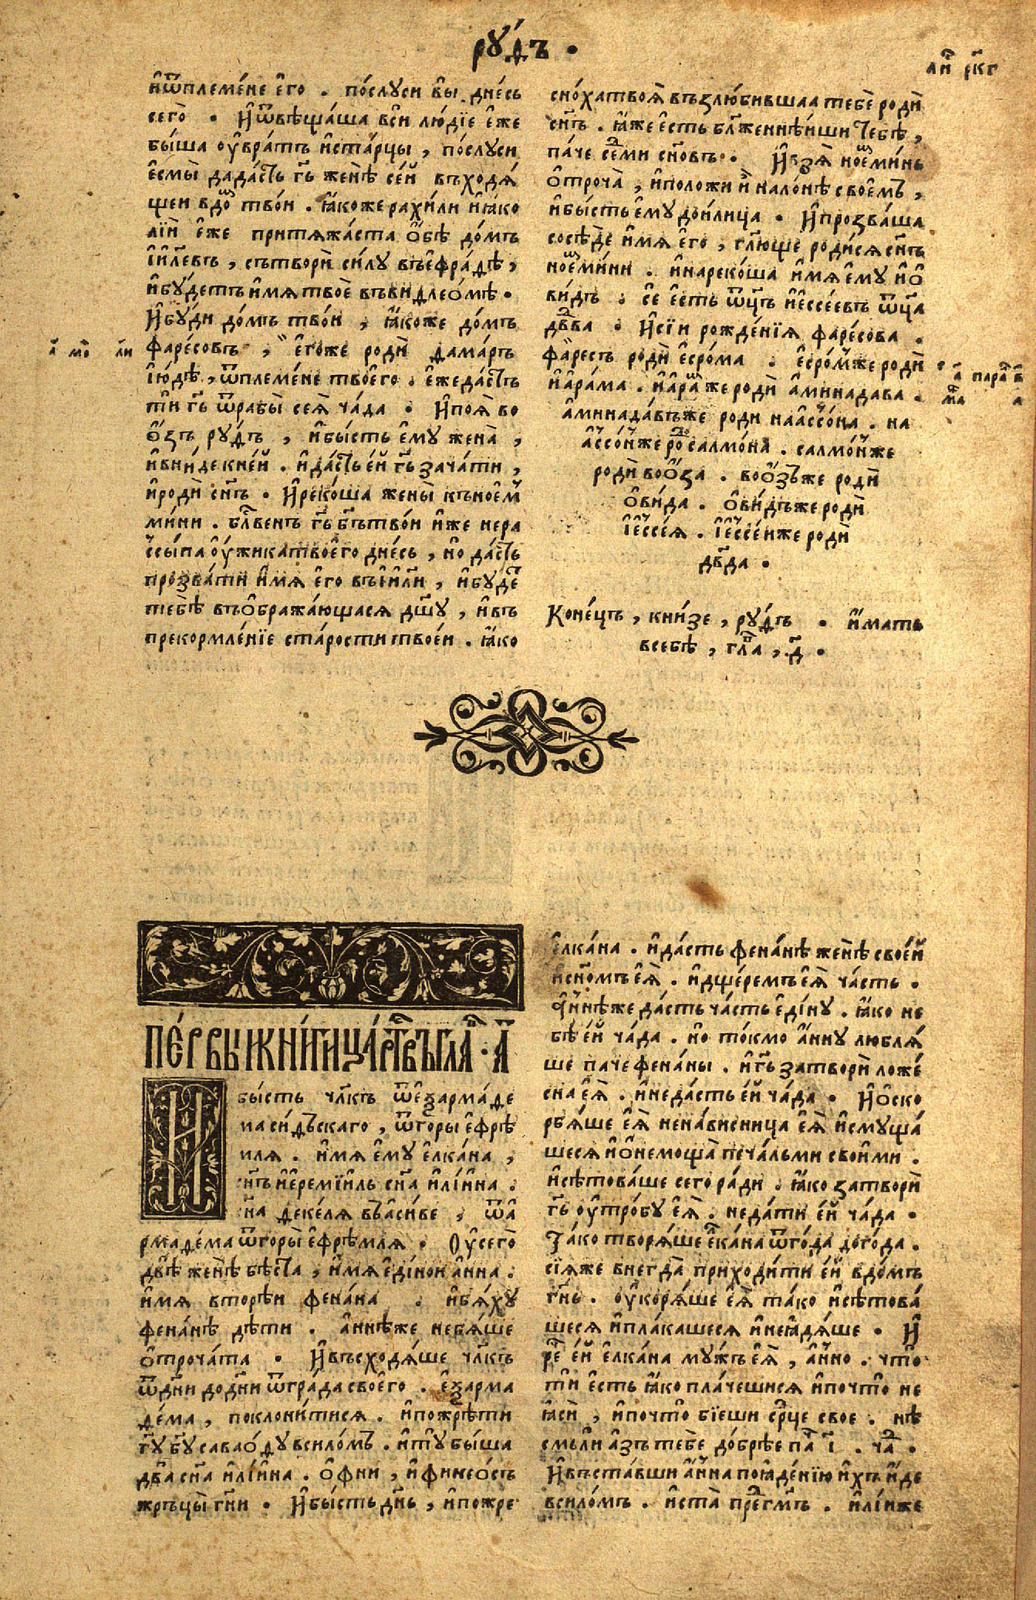 рꙋ́дъ .
ли ркг
иѿплеме́не е҆го̀ . послꙋси вы̀ дне́сь
сего̀ . И҆ѿвѣща́ша вси лю́дїе е҆же
бы́ша оу҆вра́тъ иста́рцы , по́слꙋси
е҆смы̀ дада́сть гь женѣ̀ се́й въходѧ́
щеи вдо твои . ꙗ҆коже рахи́ли иꙗ҆ко
лі́и е҆же притѧжа́ста о҆бѣ̀ до́мъ
і҆и҃левъ , сътворѝ си́лꙋ въефра́дѣ ,
ибꙋ́детъ и҆мѧ твоѐ въвидлео́мѣ .
И҆бꙋ́ди до́мъ твои , ꙗ҆коже до́мъ
фаре́совъ , е҆го́же родѝ дама́рь
і҆ю́дѣ , ѿплеме́не твое́го . е҆жеда́сть
ти гь ѿрабы̀ сеѧ̀ ча́да . И҆поѧ̀ во
о҆́зъ рꙋ́дъ , ибы́сть е҆мꙋ жена̀ ,
ивни́де к не́й . ида́сть е́й гь зача́ти ,
ироди сн҃ъ . И҆реко́ша жены̀ къное́м
ми́ни . бл҃ве́нъ гь бг҃ътво́и и҆же нера
ссы́па оу҆́жика твое́го дне́сь , но да́сть
прозва́ти и҆мѧ е҆го въі҆и҃ли , ибꙋ́де
тебѣ̀ въо҆бражаю́щасѧ дш҃ꙋ , и҆въ
прекормле́нїе ста́рости твое́и . ꙗ҆ко
сно́ха твоѧ̀ възлюбившаа тебѐ родѝ
сн҃ъ . ꙗ҆́же е҆сть бл҃женнѣиши тебѣ̀ ,
па́че се́ми сн҃овъ . И҆взѧ̀ ное́минь
о҆троча̀ , иположи и҆ налонѣ свое́мъ ,
ибы́сть е҆мꙋ дои́лица . И҆прозва́ша
сосѣ́де и҆мѧ е҆го̀ , гл҃юще роди́сѧ сн҃ъ
ное́мини . инареко́ша и҆мѧ е҆мꙋ и҆ѻ
ви́дъ . се е҆сть ѿц҃ъ і҆ессе́евъ ѿц҃а
дв҃да . И҆сїи рожде́нїѧ фаре́сова .
фаре́съ родѝ е҆сро́ма . е҆сро́мже родѝ
и҆ара́ма . и҆ара́мже родѝ а҆минада́ва .
а҆минада́въже роди наассо́на . на
ассо́нже ро салмо́на . салмо́нже
родѝ воо́за . воо́зъже родѝ
о҆ви́да . о҆ви́дъже родѝ
і҆ессе́ѧ . і҆ессе́иже родѝ
дв҃да .
Коне́цъ , кни́зе , рꙋ́дъ . и҆́мать
всебѣ̀ , гл҃а , д҃ .
Пе́рвыѧ кни́ги ца́рствъ гла҃ . а҃
И
бы́сть чл҃къ ѿе҆арма́де
ма си́дъскаго , ѿгоры е҆фрѣ
мля . и҆мѧ е҆мꙋ е҆лка́на ,
сн҃ъ и҆еремїиль сн҃а и҆лі́ина .
сн҃а деке́лѧ въаси́ве , ѿа
рмаде́ма ѿгоры̀ е҆фрѣ́млѧ . Оу҆сего̀
двѣ̀ женѣ̀ бѣ́ста , и҆мѧ е҆ди́нои а҆́нна .
и҆мѧ вторѣ́и фена́на . ибѧ́хꙋ
фена́нѣ дѣ́ти . а҆ннѣже небѧ́ше
о҆троча́та . И҆въсходѧ́ше чл҃къ
ѿдн҃и до дн҃и ѿгра́да своего̀ . е҆арма
де́ма , поклони́тисѧ . и҆пожрѣ́ти
гꙋ҃ бг҃ꙋ савао́дꙋ всило́мъ . итꙋ̀ бы́ша
два̀ сн҃а и҆лі́ина . о҆фни , и҆финео́съ
жръцы̀ гн҃и . И҆бы́сть дн҃ь , и҆пожре
е҆лка́на . ида́сть фена́нѣ женѣ̀ свое́й
исн҃омъ е҆ѧ̀ . и҆дще́ремъ е҆ѧ̀ ча́сть .
а҆́ннѣже да́сть ча́сть е҆ди́нꙋ . ꙗ҆́ко не
бѣ̀ е́й ча́да . но то́кмо а҆́ннꙋ люблѧ́
ше паче фена́ны . иг҃ь затворѝ ложе́
сна е҆ѧ̀ . инеда́сть е́й ча́да . И҆оско
рбѧ́ше е҆ѧ̀ ненави́сница е҆ѧ̀ исмꙋща́
шесѧ и҆онемоща̀ печа́льми свои́ми .
исѣтова́ше сего̀ ра́ди . ꙗ҆ко затворѝ
гь оу҆тро́бꙋ е҆ѧ̀ . неда́ти е́й ча́да .
Та́ко творѧ́ше е҆лка́на ѿго́да до го́да .
сїѧже внегда̀ приходи́ти е́й вдо́мъ
гн҃ь . оу҆корѧ́ше е҆ѧ̀ тако исѣтова́
шесѧ и҆пла́кашесѧ и҆неꙗдѧ́ше . И҆
ре́ е́й е҆лка́на мꙋ́жъ е҆ѧ̀ , а҆́нно . что́
ти е҆сть ꙗ҆ко пла́чешисѧ и҆почто̀ не
ꙗ҆сѝ , и҆почто̀ бїеши ср҃це свое . нѣ
смьли а҆зъ тебе до́брѣе па҃ і҃ . ча҃ .
И҆въста́вши а҆́нна поꙗде́нїю и҆хъ и҆́де
всило́мъ . и҆ста̀ пре гм҃ъ . и҆лі́иже